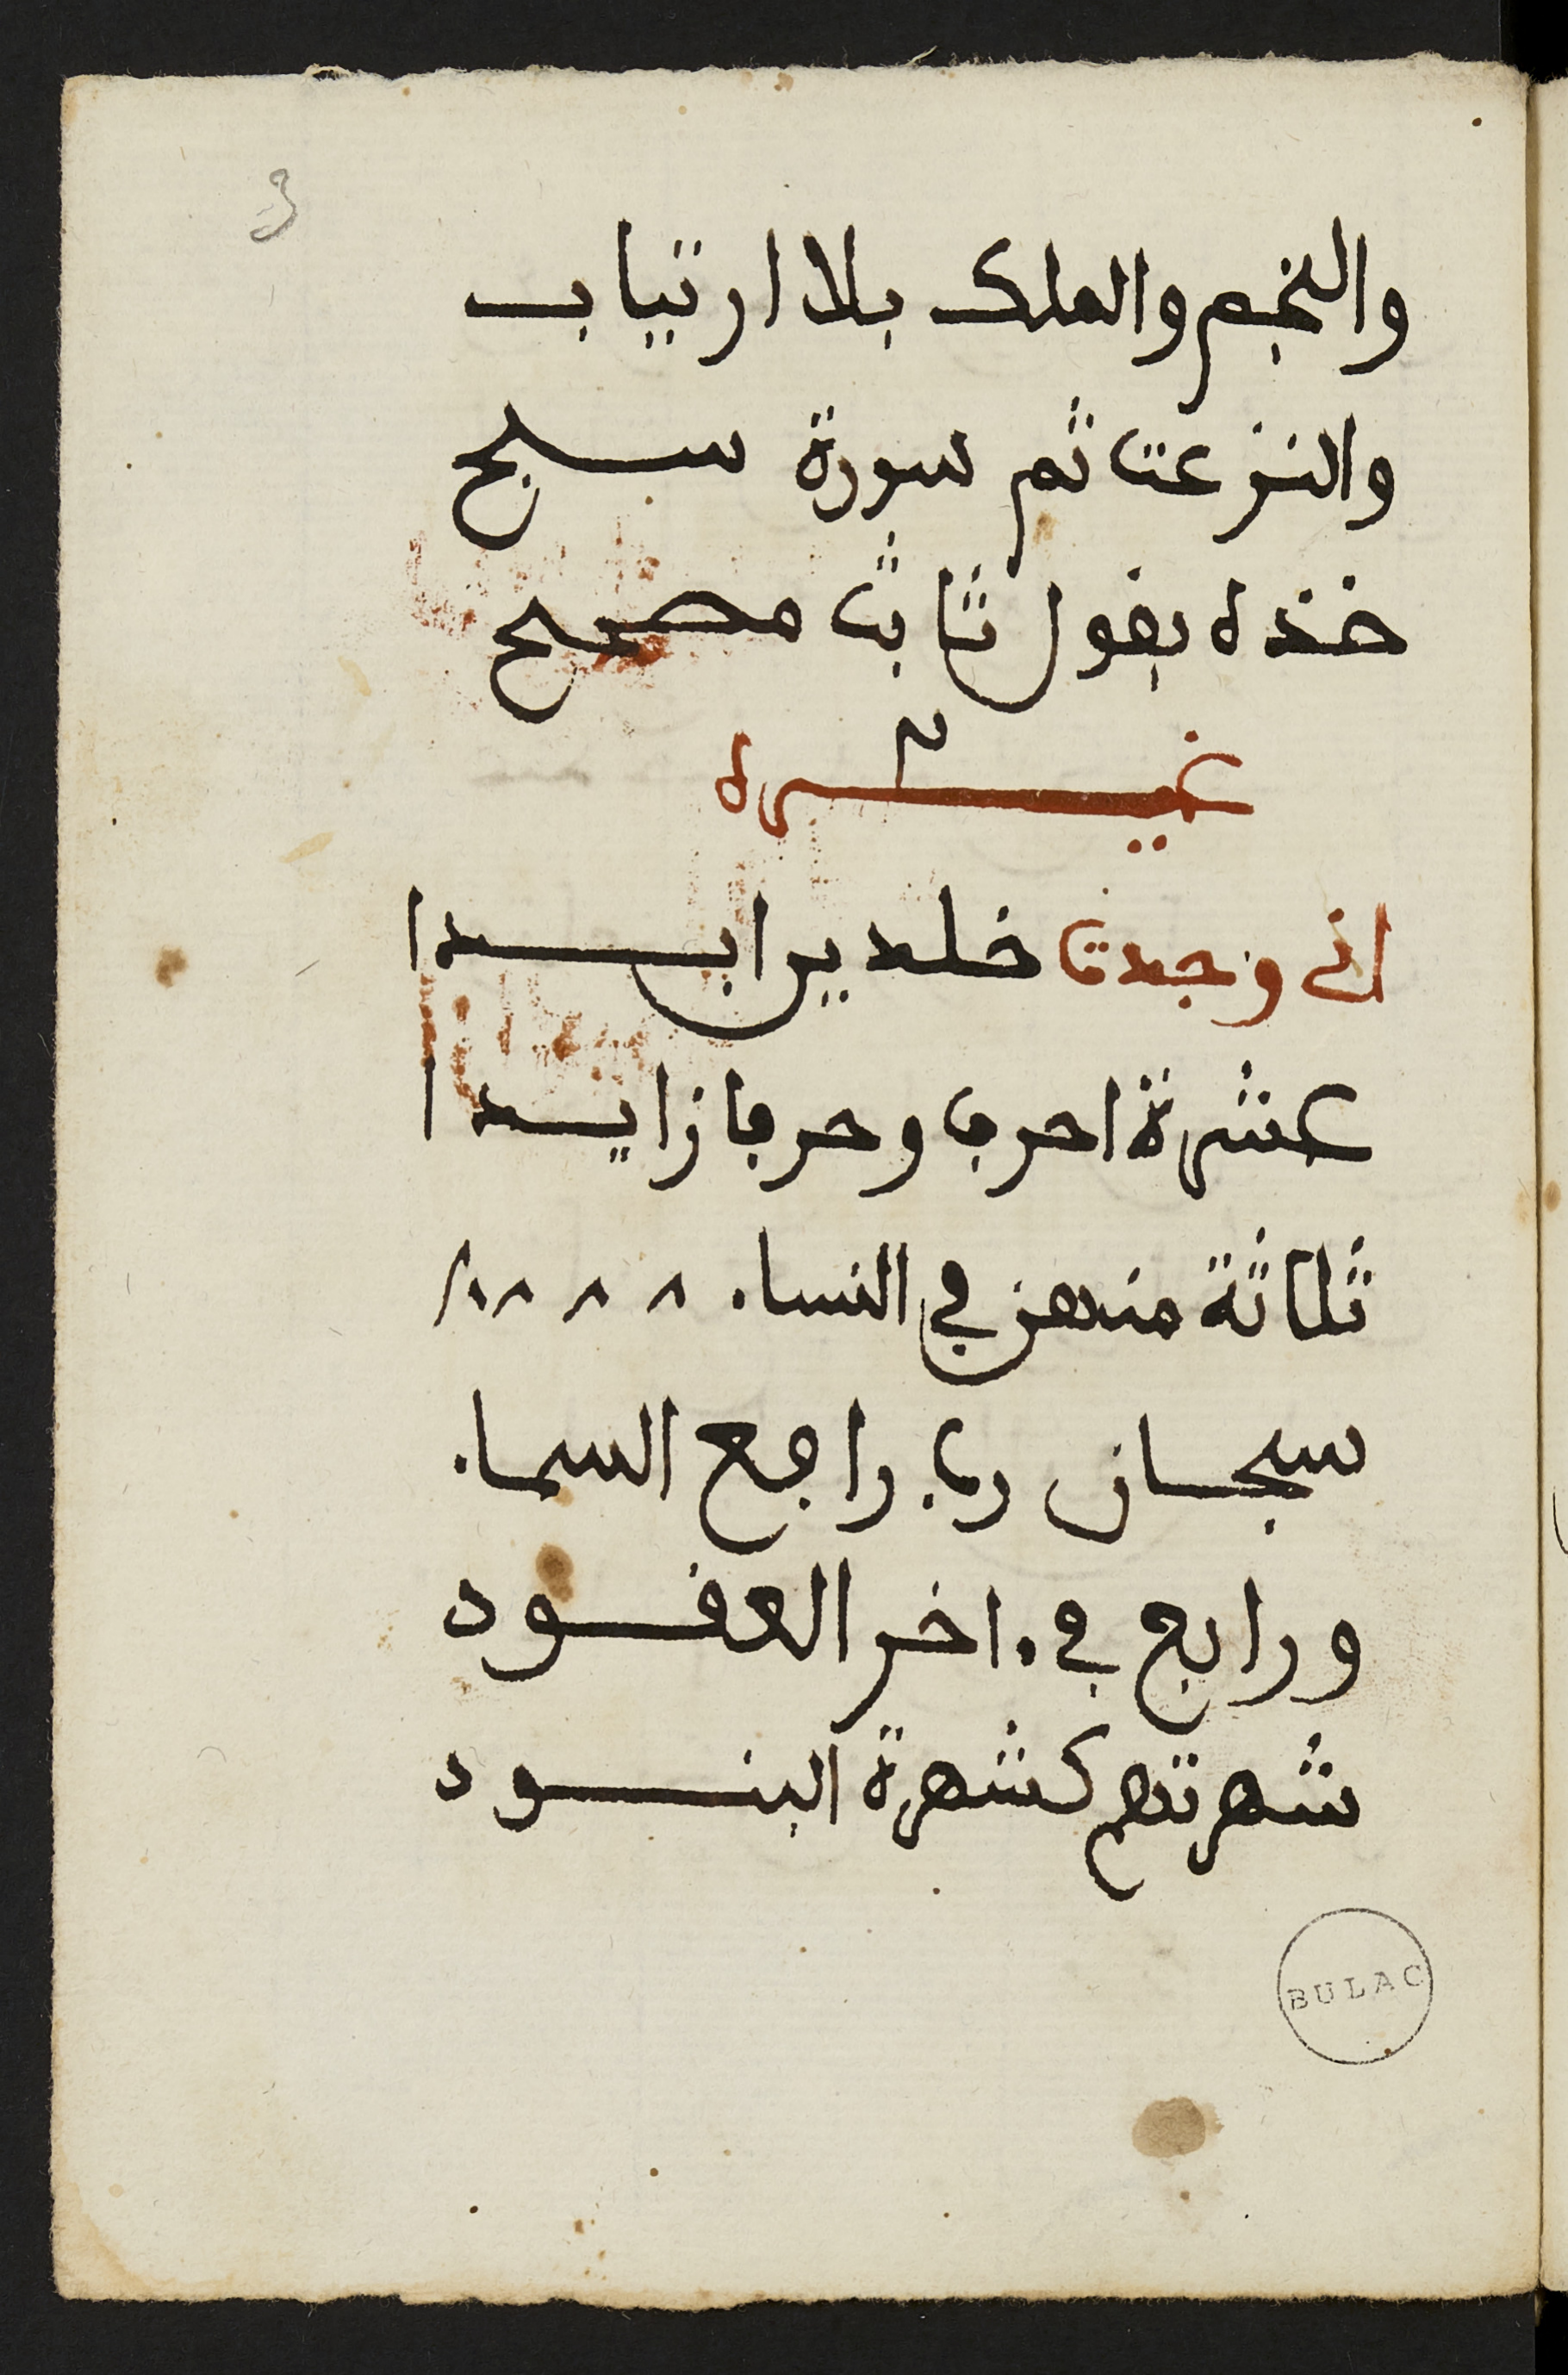 3
والنجم والملك بلا ارتياب
والنزعت ثم سورة سبح
خذه بقول ثابت مصحح
غيره
انى وجدت خلدين ابدا
عشرة احرف وحرفا زايدا
ثلاثة منهن في النساء
سبحان رب رافع السماء
ورابع في ءاخر العقود
شهرتهم كشهرة البنود
BULAC